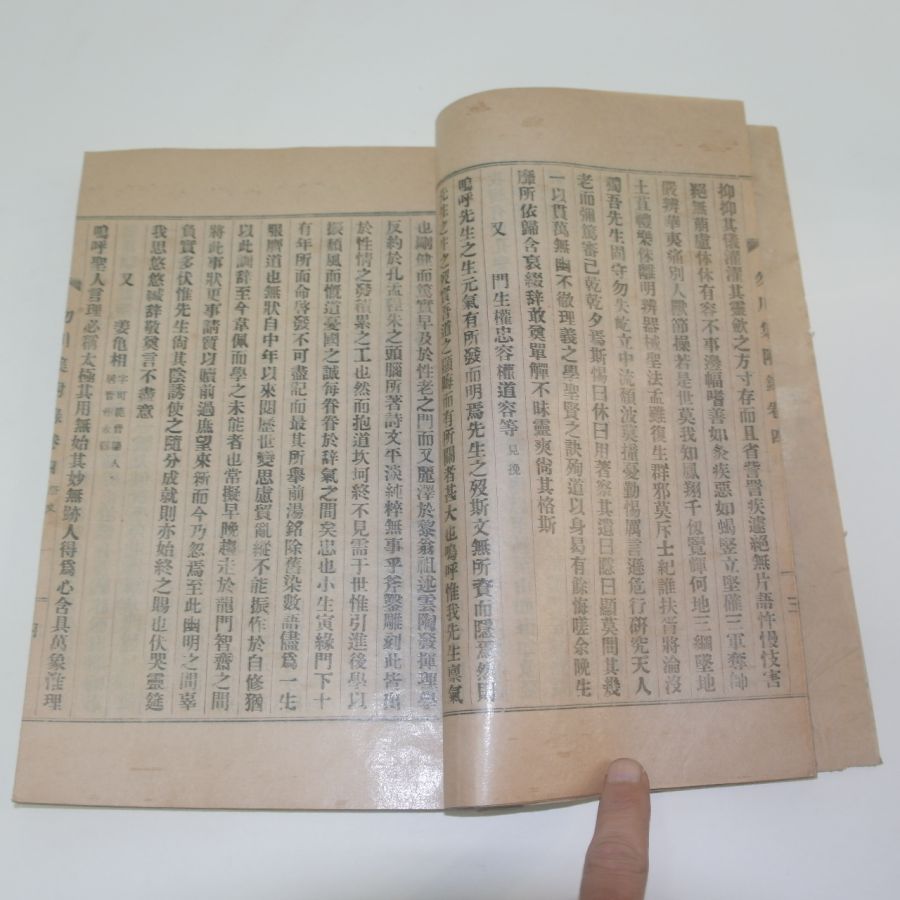 抑抑其儀濯濯其靈歛之方寸存而且省訾詈疾遽絕無片語忤慢忮害
絕無萠慮休休有容不事邊幅嗜善如灸疾惡如蝎竪立堅確三軍奪帥
嚴辨華夷痛別人獸節操若是世莫我知鳳翔千仭覽輝何地三綱墜地
土苴禮樂休離明辨器械聖法孟雖復生群邪莫斥士紀誰扶胥將淪沒
獨吾先生固守勿失屹立中流頹波莫撞憂勤惕厲言遜危行硏究天人
老而彌篤審己乾乾夕焉斯惕曰休曰用著察其遺曰隱曰顯莫間其幾
一以貫萬無幽不徹理義之學聖賢之訣殉道以身曷有餘悔嗟余晩生
靡所依歸含哀綴辭敢奠單觶不昧靈爽尙其恪斯
又 門生權忠容權道容等 見挽
嗚呼先生之生元氣有所發而明焉先生之歿斯文無所賚而隱焉然則
先生之生之歿實吾道之顯晦而有所關者甚大也嗚呼惟我先生禀氣
也剛健而篤實早及於性老之門而又麗澤於黎翁祖述雲陶發揮理學
反約於孔孟程朱之頭腦所著詩文平淡純粹無事乎斧鑿雕刻此皆
於性情之發積累之工也然而抱道坎坷終不見需于世惟引進後學以
振頹風而慨道憂國之誠每眷眷於辭氣之間矣忠也小生寅緣門下十
有年所面命啓發不可盡記而最其所擧前湯銘除舊染數語儘爲一生
服膺道也無狀自中年以來閱歷世變思慮貿亂縱不能振作於自修猶
以此訓辭至今韋佩而學之未能者也當擬早晩趨走於龍門智齋之間
將此事狀更事請質以贖前過庶望來新而今乃忽焉至此幽明之間辜
負實多伏惟先生尙其陰誘使之隨分成就則亦始終之賜也伏哭靈筵
我思悠悠緘辭敬奠言不盡意
又 姜龜相 字可範晉陽人
嗚呼聖人言理必稱太極其用無始其妙無跡人得爲心含具萬象淮理